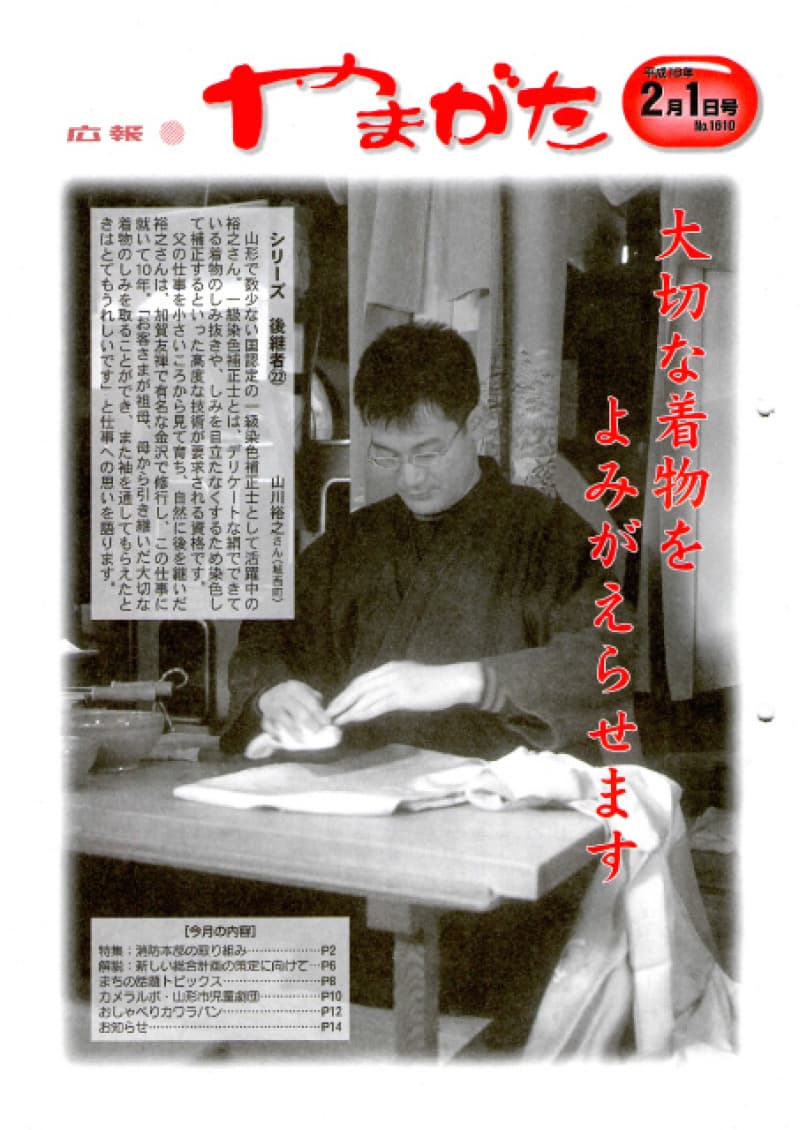 広報
やまがた
平成18年
2月1日号
No.1610
大切な着物を
よみがえらせます
シリーズ 後継者㉒
山川裕之さん(城西町)
山形で数少ない国認定の一級染色補正士として活躍中の
裕之さん。一級染色補正士とは、デリケートな絹でできて
いる着物のしみ抜きや、しみを目立たなくするため染色し
て補正するといった高度な技術が要求される資格です。
父の仕事を小さいころから見て育ち、自然に後を継いだ
裕之さんは、加賀友禅で有名な金沢で修行し、この仕事に
就いて10年。「お客さまが祖母、母から引き継いだ大切な
着物のしみを取ることができ、また袖を通してもらえたと
きはとてもうれしいです」と仕事への思いを語ります。
[今月の内容]
特集：消防本部の取り組み…………………P2
解説：新しい総合計画の策定に向けて…P6
まちの話題トピックス………………………P8
カメラルポ・山形市児童劇団……………P10
おしゃべりカワラバン……………………P12
お知らせ……………………………………P14